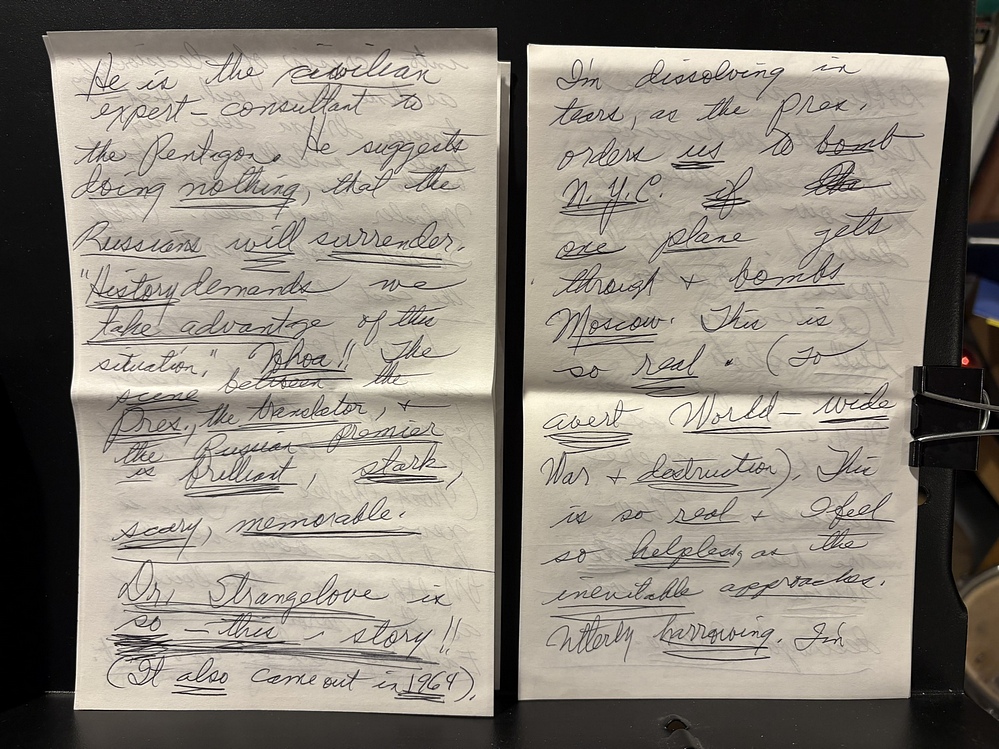 He is the civilian
expert-consultant to
the Pentagon. He suggests
doing nothing, that the
Russians will surrender.
"History demands we
take advantage of this
situation." Whoa!! The
scene between the
Pres., the translator, +
the Russian premier
is brilliant, stark,
scary, memorable.
Dr. Strangelove is
so - this - story!!
(It also came out in 1964).
I'm dissolving in
tears, as the Pres.
orders us to bomb
N.Y.C. if
one plane gets
through + bombs
Moscow. This is
so real. (To
avert World-wide
War + destruction). This
is so real + I feel
so helpless, as the
inevitable approaches.
Utterly harrowing. I'm